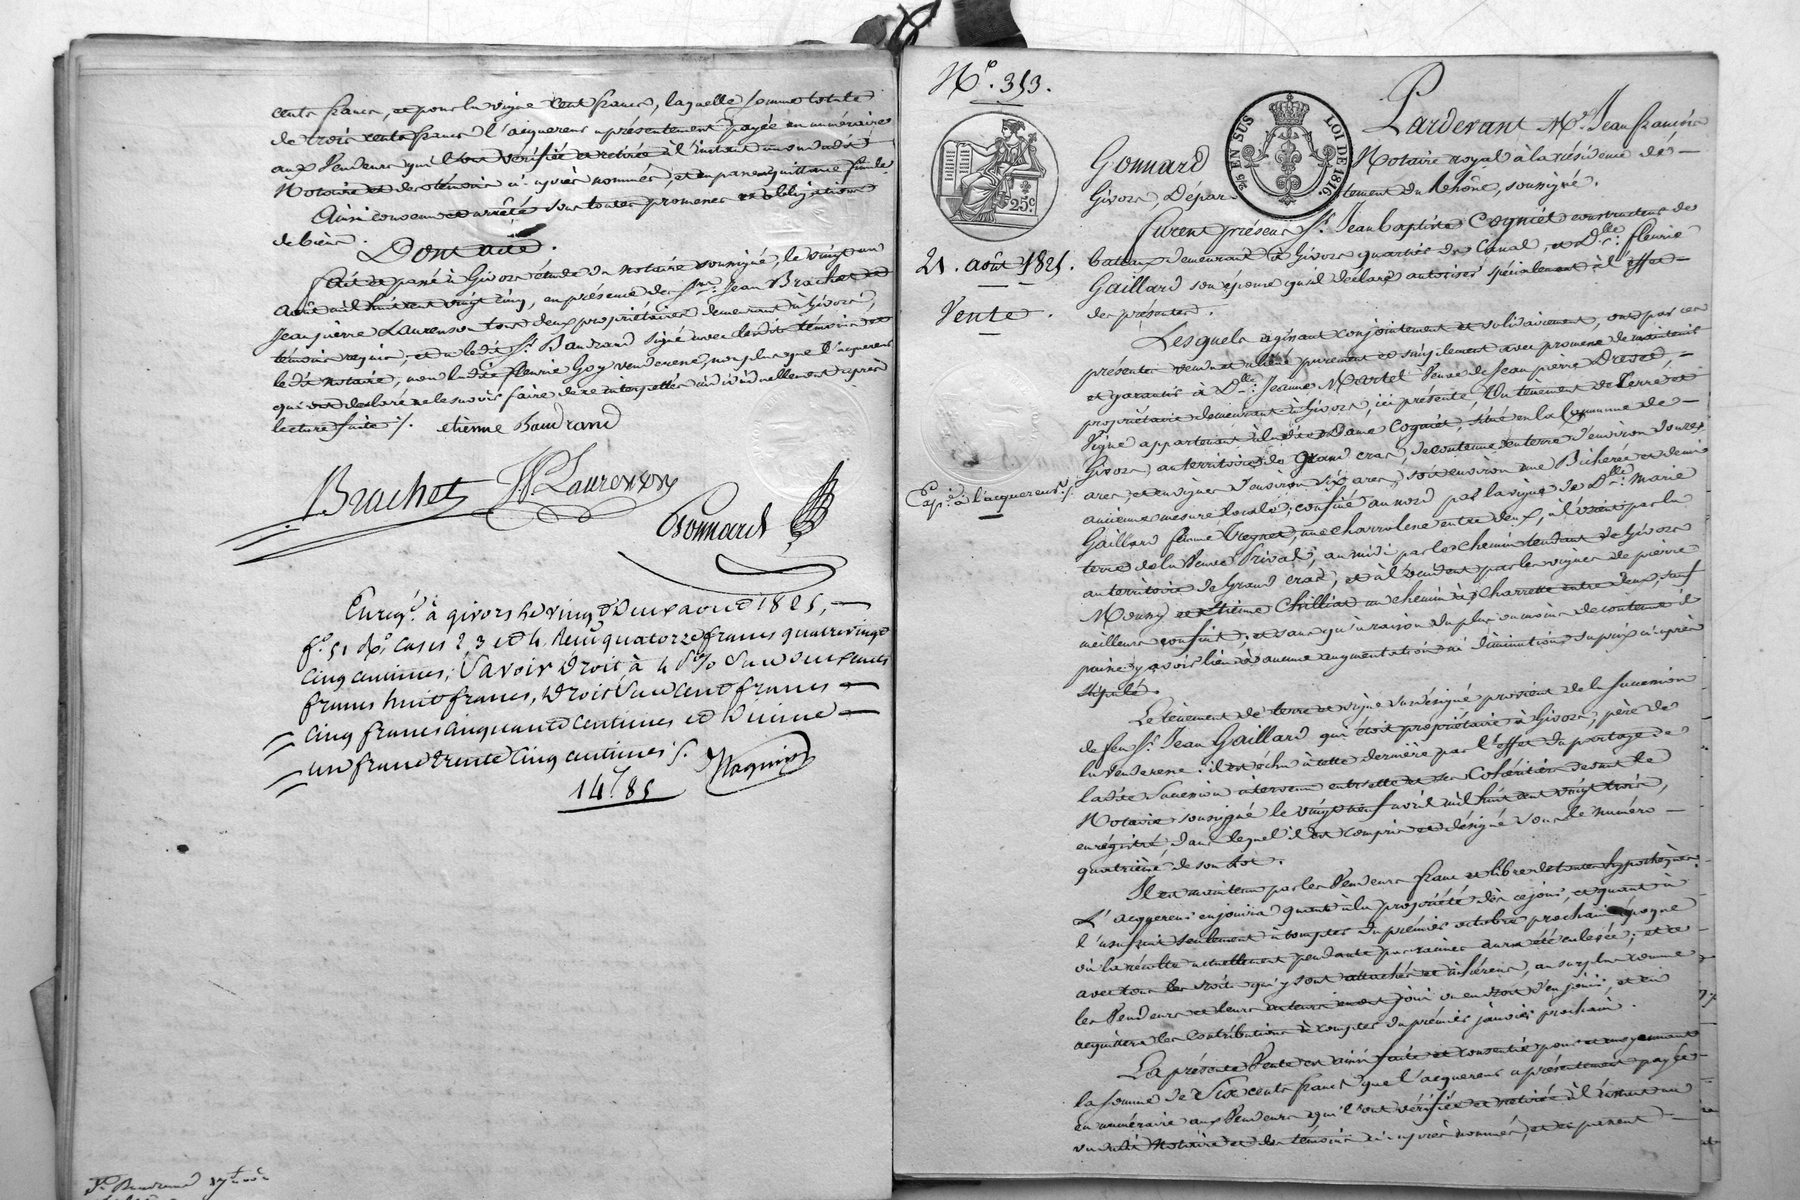 cents francs, et pour la vigne cent francs, laquelle somme totale
de trois cents francs l'acquereur a présentement payée en numéraire
aux Vendeurs qui l'ont vérifiée et retirée à l'instant au vu dudit
Notaire et des témoins ci-après nommés, et en passent quittance finale.
Ainsi convenu et arrêté sous toutes promesses et obligations
de biens. Dont acte.
Fait et passé à Givors étude du notaire soussigné, le vingt un
août mil huit cent vingt cinq, en présence des Srs. Jean Brachet et
Jean pierre Laurenson tous deux propriétaires demeurant à Givors,
témoins requis, et a ledit Sr. Baudrand signé avec lesdits témoins et
ledit notaire, non ladite fleurie Goy venderesse, non plus que l'acquereur
qui ont déclaré ne le savoir faire de ce interpellés individuellement après
lecture faite ./. etienne Baudrand
Brachet JP Laurenson
Gonnard
Enregé. à givors le vingt deux aout 1825,
fo. 51 Ro. cases 2, 3 et 4. Reçu quatorze francs quatrevingt
cinq centimes; Savoir Droit à 4 p% Sur deux cents
francs huit francs, Droit Sur cent francs
cinq francs cinquante centimes et Dixime
un franc trente cinq centimes ./.
14f. 85
No. 353.
25 c
25 EN SUS LOI DE 1816.
21. août 1825.
Vente.
Exp. à l'acquereur ./.
Pardevant Me. Jean françois
Gonnard Notaire royal à la résidence de
Givors, Département du Rhône, soussigné.
Furent présens Sr. Jean baptiste Cogniet constructeur de
bateaux demeurant à Givors quartier du Canal, et Dlle. fleurie
Gaillard son épouse qu'il déclare autoriser spécialement à l'effet
des présentes.
Lesquels agissant conjointement et solidairement, ont par ces
présentes vendu et aliéné purement et simplement avec promesse de maintenir
et garantir à Dlle. Jeanne Martel Veuve de Jean pierre Drevet,
propriétaire demeurant à Givors, ici présente, Un ténement de Terre et
Vigne appartenant à ladite Dame Cogniet, situé en la Commune de
Givors, au territoire de Grand cras, de contenue en terre d'environ douze
ares, et en vigne d'environ six ares, soit environ une Bicherée et demi
ancienne mesure locale; confiné au nord par la vigne de Dlle. Marie
Gaillard femme une charroliere entre deux, à l'orient par la
terre de la Veuve Prival, au midi par le chemin tendant de Givors
au territoire de Grand cras, et à l'occident par les vignes de pierre
et Etienne Chilliat un chemin à charrette entre deux, sauf
meilleurs confins; et sans qu'à raison du plus ou moins de contenue il
puisse y avoir lieu à aucune augmentation ni diminution du prix ci-après
stipulé.
Le ténement de terre et vigne susdésigné provient de la succession
de feu Sr. Jean Gaillard qui étoit propriétaire à Givors, père de
la Venderesse: il est échu à cette dernière par l'effet du partage de
ladite Succession intervenu entr'elle et ses Cohéritiers devant le
Notaire soussigné le vingt neuf avril mil huit cent vingt trois,
enrégistré, dans lequel il est compris et désigné sous le numéro
quatrième de son Lot.
Il est maintenu par les Vendeurs franc et libre de toutes hypothèques.
L'acquereur en jouira quant à la propriété dès ce jour, et quant à
l'usufruit seulement à compter du premier octobre prochain époque
où la récolte actuellement pendante par racines aura été enlevée; et ce
avec tous les droits qui y sont attachés et inhérens, au surplus comme
les Vendeurs et leurs auteurs en ont joui ou eu droit d'en jouir, et en
acquittera les contributions à compter du premier janvier prochain.
La présente Vente est ainsi faite et consentie pour et moyennant
la somme de Six cents francs que l'acquereur a présentement payée
en numéraire aux Vendeurs qui l'ont vérifiée et retirée à l'instant au
vu dudit Notaire et des témoins ci-après nommés, et en passent